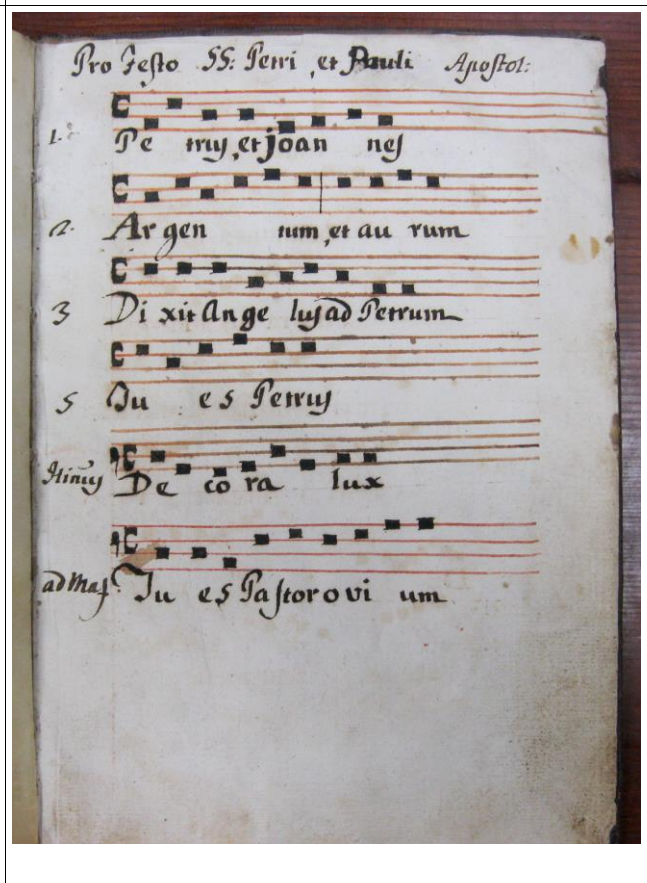 Pro Festo SS: Petri, et Pauli Apostol:
1. Pe trus, et joan nes
2. Ar gen tum, et au rum
3 Di xit Ange lus ad Petrum
5 Tu es Petrus
Himus De co ra lux
ad Mag Tu es Pastor o vi um